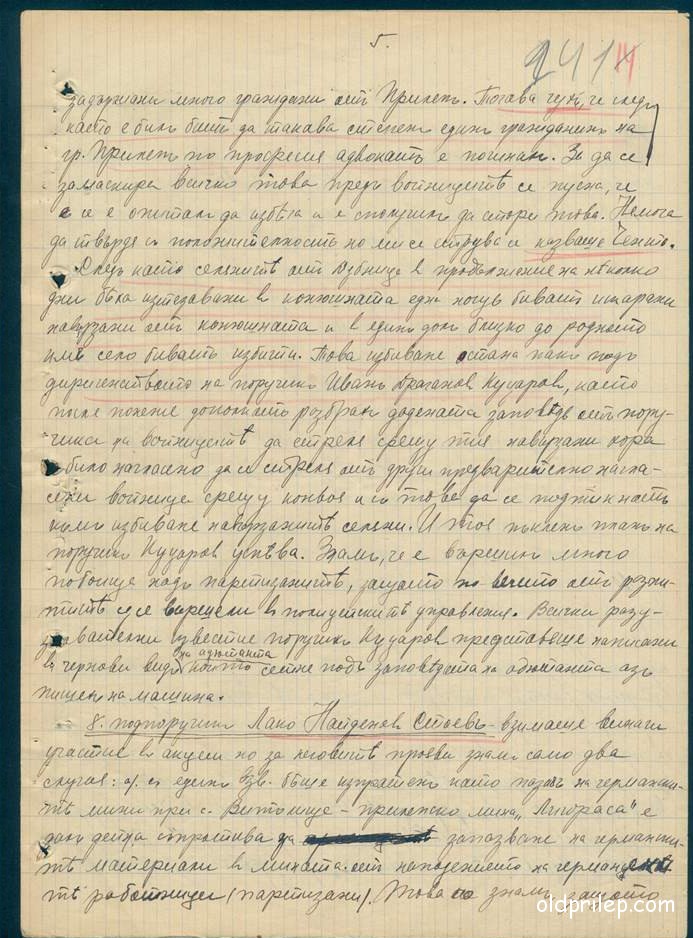 5.
задържани много граждани отъ Прилепъ. Тогава чухъ, че следъ
като е билъ битъ до такава степень единъ гражданинъ на
гр. Прилепъ по професия адвокатъ е починалъ. За да се
замаскира всичко това предъ войницитѣ се пусна, че
се е опиталъ да избѣга и е сполучилъ да стори това. Немога
да твърдя съ положителность но ми се струва се казваше
Следъ като селянитѣ отъ въ продължение на нѣколко
дни бѣха изтезавани въ конюшната една нощь биватъ изкарани
навързани отъ конюшната и въ единъ долъ близко до родното
имъ село биватъ избити. Това избиване остана пакъ подъ
диригентството на поручикъ Иванъ Драгановъ Куцаровъ, като
после понеже доколкото разбрахъ дадената заповѣдь отъ пору-
чика на войницитѣ да стрелятъ срещу тия навързани хора
било нагласено да се стреля отъ други предварително нагла-
сени войници срещу конвоя и съ това да се подтикнатъ
къмъ избиване навързанитѣ селяни. И тоя пъкленъ планъ на
поручикъ Куцаровъ успѣва. Зная, че е вършилъ много
побоища надъ партизанитѣ, защото повечето отъ разпи-
титѣ се вършели въ полицейскитѣ управления. Всички разу-
знавателни известия поручикъ Куцаровъ представяше написани
на адютанта
въ чернови видъ които сетне подъ заповедта на адютанта азъ
пишехъ на машина.
8. подпоручикъ Лако Найденовъ Стоевъ - взимаше винаги
участие въ акции но за неговитѣ прояви зная само два
случая: а/. съ единъ взв. бѣше изпратенъ като пазачъ на германски-
тѣ мини при с. Витолище - прилепско мина „Лигураса" е
далъ детна съпротива да запазване на германски-
тѣ материали въ мината отъ нападението на
тѣ работници /партизани/. Това зная, защото
oldprilep.com